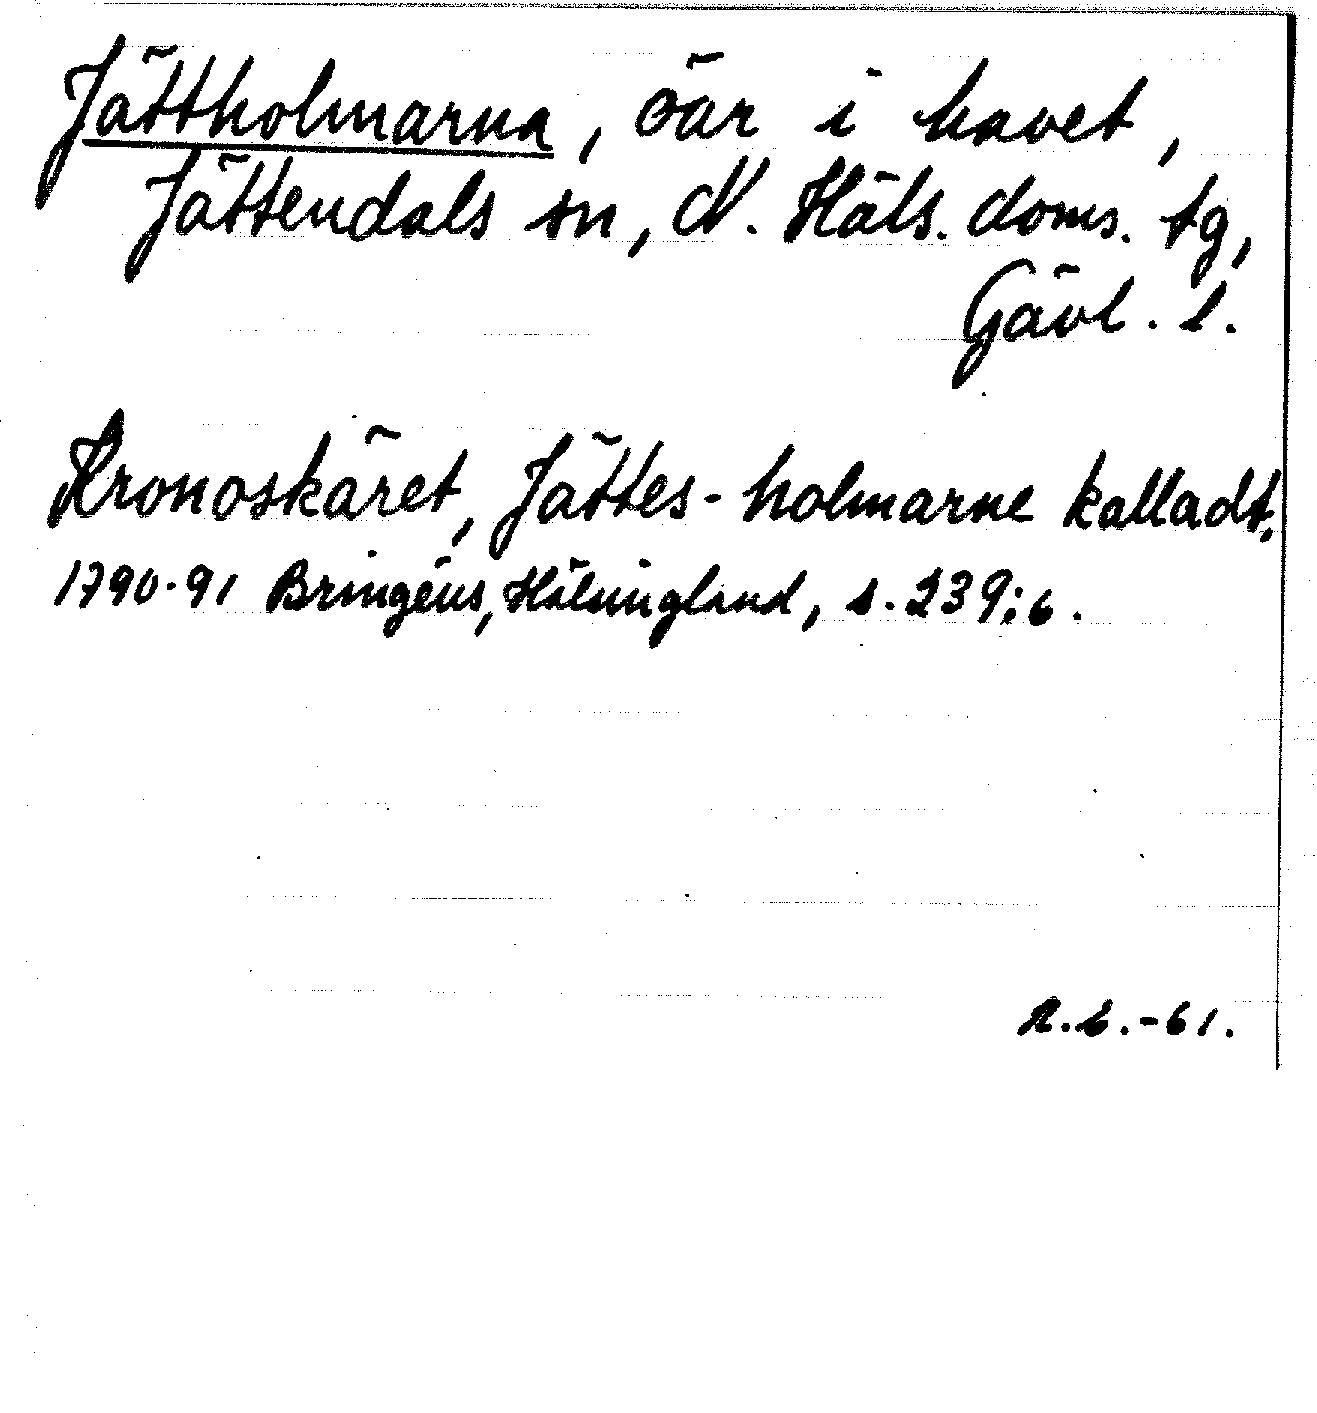 Jättholmarna, öar i havet,
Jättendals sn, N. Häls. doms. tg,
Gävl. l.
Kronoskäret, Jättes-holmarne kalladt.
1790-91 Bringéus, Hälsingland, s. 239:6.
R.E.-61.